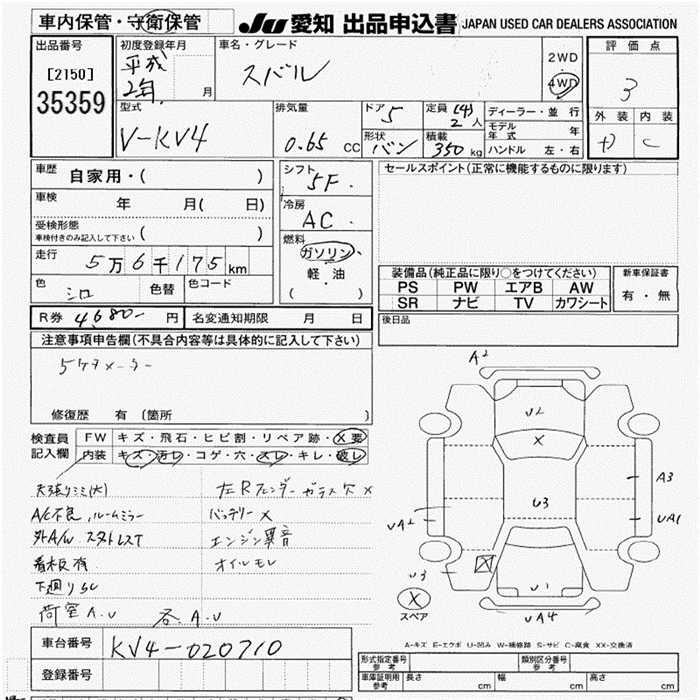 車内保管・守衛保管
JU 愛知 出品申込書 JAPAN USED CAR DEALERS ASSOCIATION
出品番号
[2150]
35359
初度登録年月
平成
2年 月
車名・グレード
スバル
2WD
4WD
評価点
3
外装 内装
D C
型式
V-KV4
排気量
0.65 CC
ドア 5
形状 バン
定員 (4)
2人
積載
350 kg
ディーラー・並行
モデル年式 年
ハンドル 左・右
車歴
自家用・( )
車検
年 月( 日)
受検形態
車検付きのみ記入して下さい ( )
走行
5万6千175km
色
シロ
色替
色コード
シフト
5F.
冷房
AC.
燃料
ガソリン
軽・油
( )
セールスポイント(正常に機能するものに限ります)
装備品(純正品に限り○をつけてください)
PS PW エアB AW
SR ナビ TV カワシート
新車保証書
有・無
R券 4,680- 円
名変通知期限 月 日
後日品
注意事項申告欄(不具合内容等は具体的に記入して下さい)
5ケタメーター
修復歴 有 (箇所 )
検査員
記入欄
FW キズ・飛石・ヒビ割・リペア跡・X要
内装 キズ・汚レ・コゲ・穴・スレ・キレ・破レ
天張りシミ(大)
A/C不良,ルームミラー
外A/W スタットレスT
看板有
下廻りSC
荷室A.U 各A.U
左Rフェンダーガラス欠X
バッテリーX
エンジン異音
オイルモレ
A2
U2
X
U3
A3
UA2
UA1
U3
X
U1
X
スペア
UA4
A-キズ E-エクボ U-凹み W-補修跡 S-サビ C-腐食 XX-交換済
車台番号
KV4-020710
登録番号
形式指定番号
参考
類別区分番号
参考
車庫証明用
参考
長さ cm
幅 cm
高さ cm